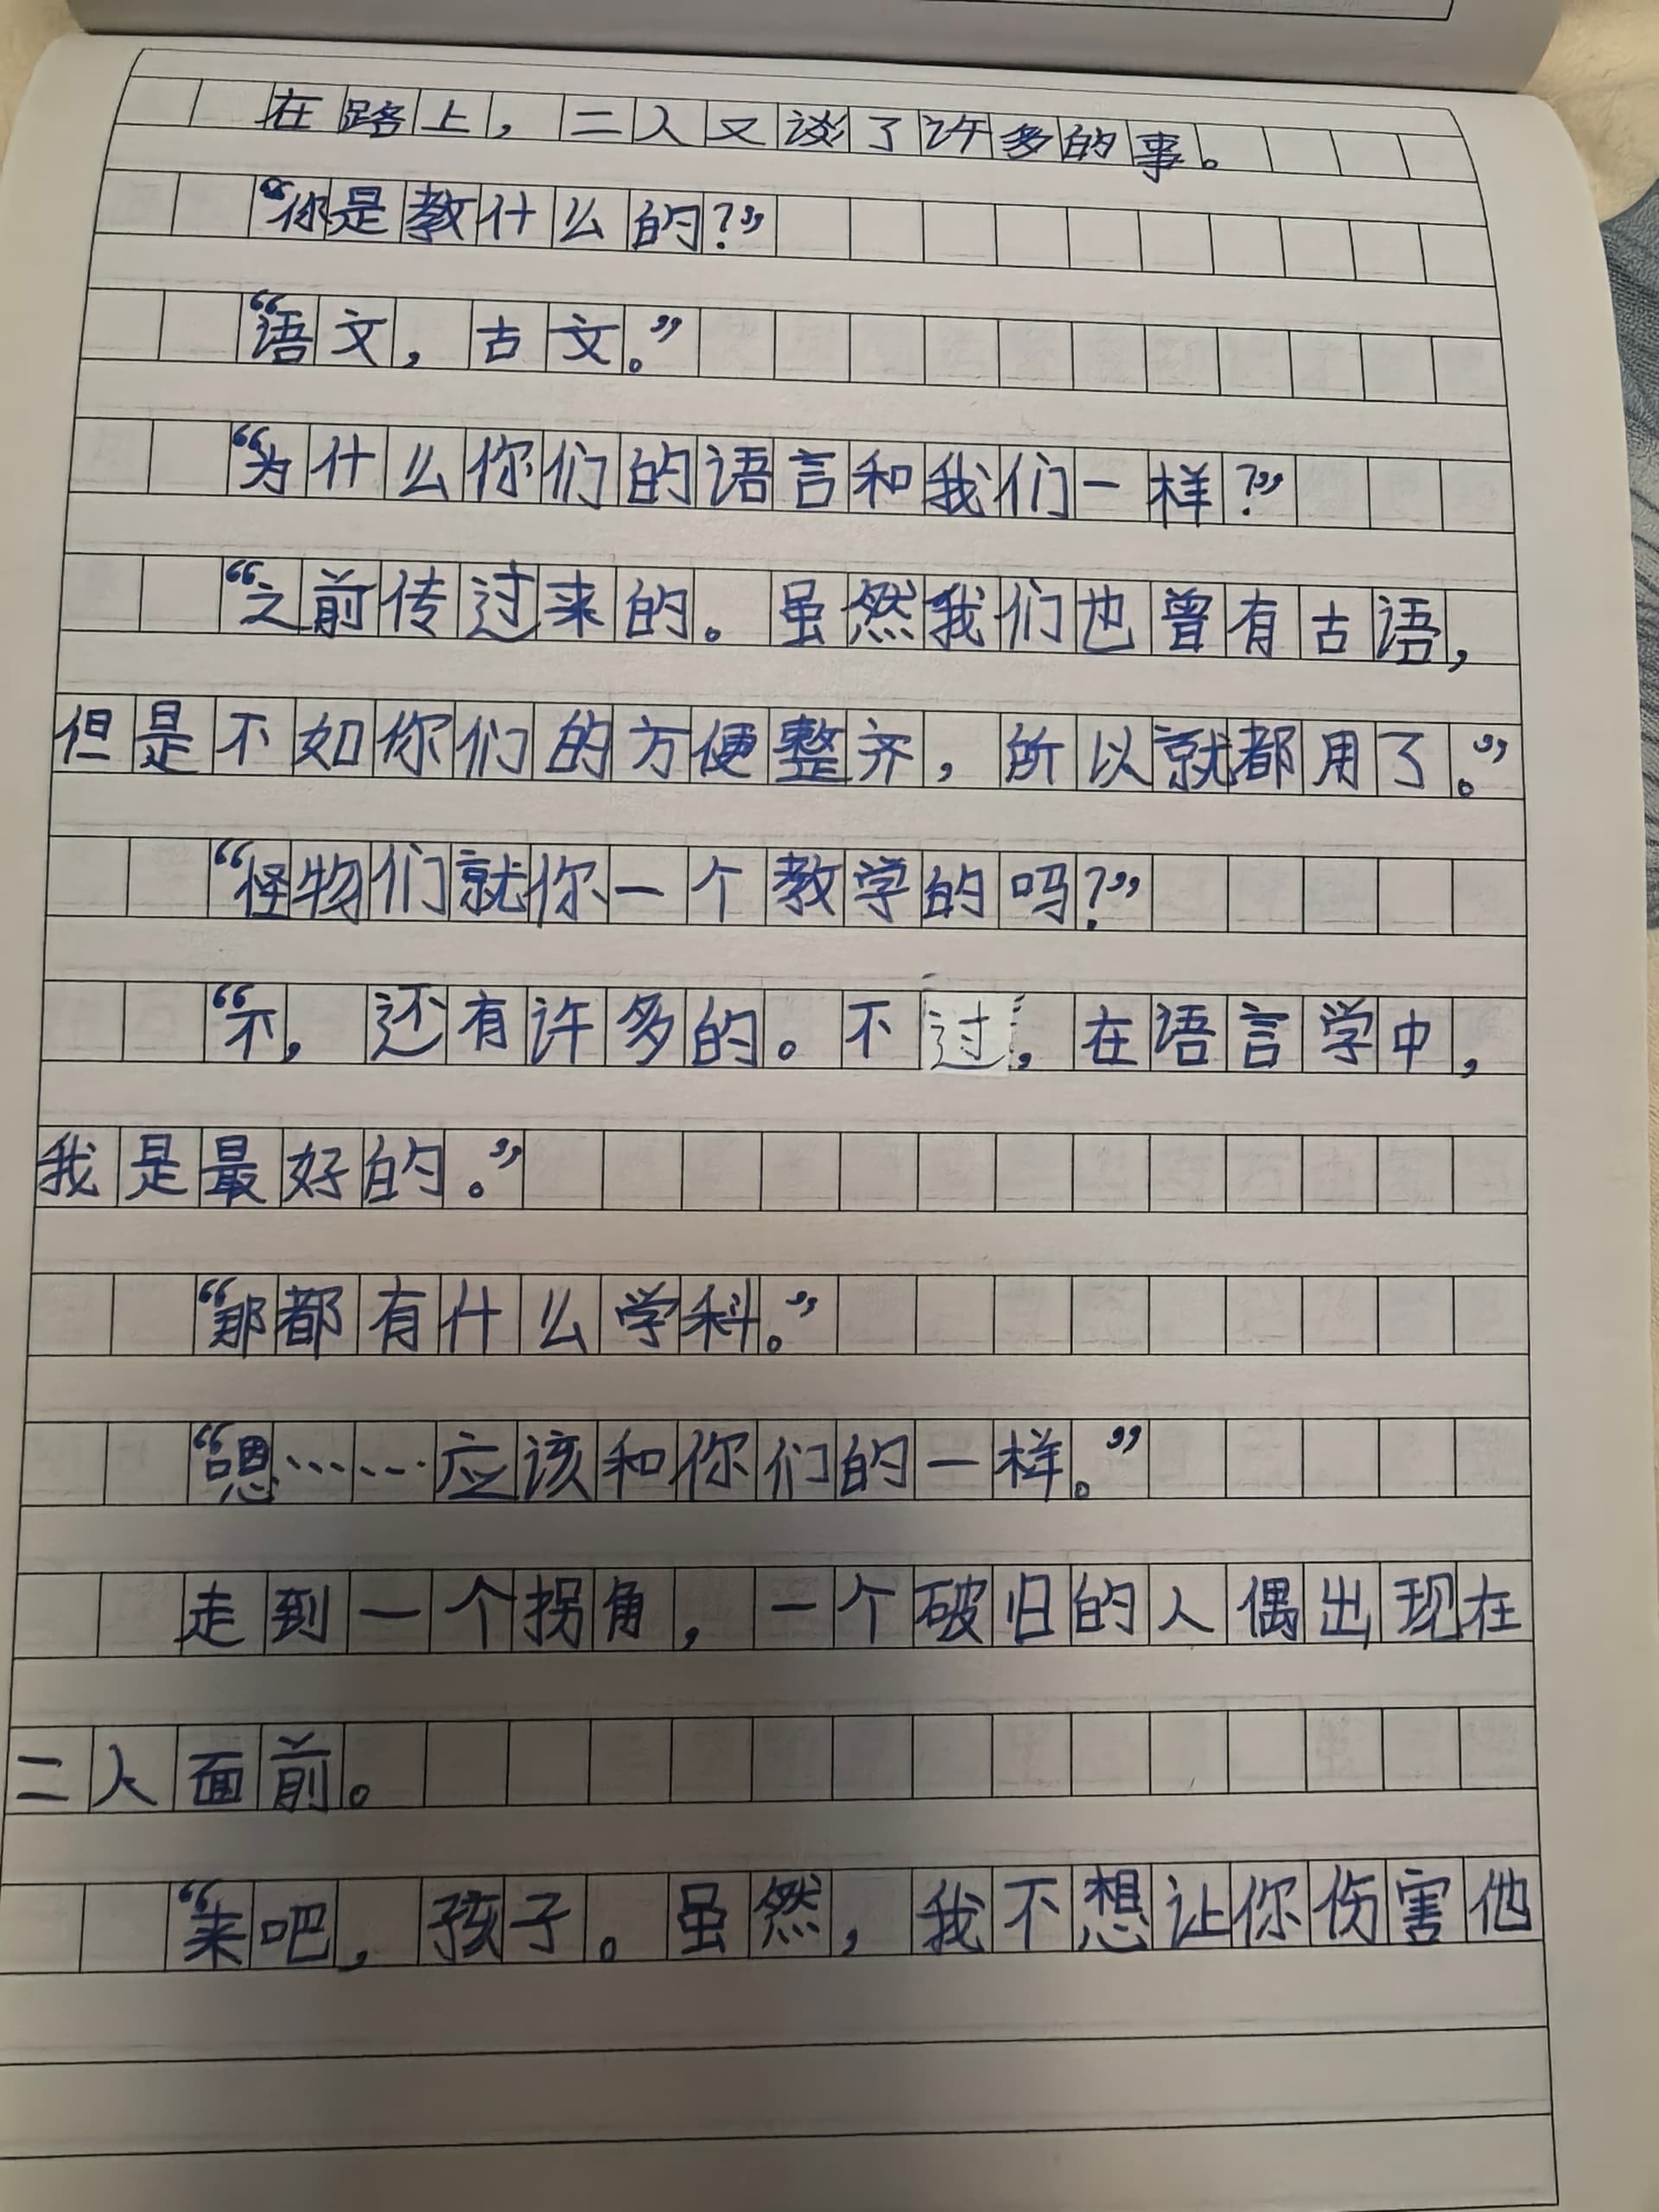 在路上，二人又谈了许多的事。
“你是教什么的？”
“语文，古文。”
“为什么你们的语言和我们一样？”
“之前传过来的。虽然我们也曾有古语，
但是不如你们的方便整齐，所以就都用了。”
“怪物们就你一个教学的吗？”
“不，还有许多的。不过，在语言学中，
我是最好的。”
“那都有什么学科。”
“嗯……应该和你们的一样。”
走到一个拐角，一个破旧的人偶出现在
二人面前。
“来吧，孩子。虽然，我不想让你伤害他